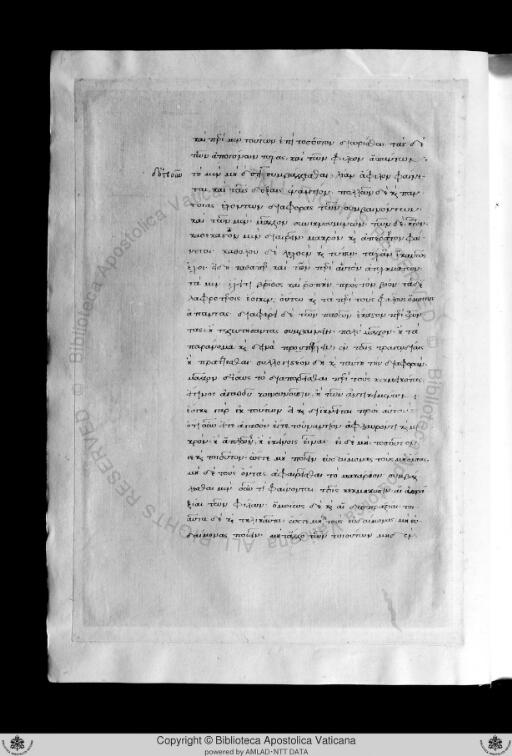 καὶ περὶ μὲν τούτων ἐπὶ τοσοῦτον διωρίσθω· τὰς δὲ
τῶν ἀπογόνων τύχας καὶ τῶν φίλων ἁπάντων
τὸ μὲν μὴ συμβάλλεσθαι λίαν ἄφιλον φαίνε
ται καὶ ταῖς δόξαις ἐναντίον· πολλῶν δὲ καὶ παν
τοίας ἐχόντων διαφορὰς τῶν συμβαινόντων·
καὶ τῶν μὲν μᾶλλον συνικνουμένων τῶν δὲ ἧττον·
καθέκαστον μὲν διαιρεῖν μακρὸν καὶ ἀπέραντον φαί
νεται· καθόλου δὲ λεχθὲν καὶ τύπῳ τάχ' ἂν ἱκανῶς
ἔχοι· εἰ δὴ καθάπερ καὶ τῶν περὶ αὐτὸν ἀτυχημάτων
τὰ μὲν ἔχει τι βρῖθος καὶ ῥοπὴν πρὸς τὸν βίον τὰ δ' ἐ
λαφροτέροις ἔοικεν, οὕτω καὶ τὰ περὶ τοὺς φίλους ὁμοίως
ἅπαντας· διαφέρει δὲ τῶν παθῶν ἕκαστον περὶ ζῶν
τας ἢ τελευτήσαντας συμβαίνειν· πολὺ μᾶλλον ἢ τὰ
παράνομα καὶ δεινὰ προϋπάρχειν ἐν ταῖς τραγωδίαις
ἢ πράττεσθαι· συλλογιστέον δὴ καὶ ταύτην τὴν διαφοράν·
μᾶλλον δ' ἴσως τὸ διαπορεῖσθαι περὶ τοὺς κεκμηκότας
εἴ τινος ἀγαθοῦ κοινωνοῦσιν ἢ τῶν ἀντικειμένων·
ἔοικε γὰρ ἐκ τούτων εἰ καὶ διικνεῖται πρὸς αὐτοὺς
ὁτιοῦν εἴτε ἀγαθὸν εἴτε τοὐναντίον ἀφαυρόν τι καὶ μι
κρὸν ἢ ἁπλῶς ἢ ἐκείνοις εἶναι· εἰ δὲ μὴ τοσοῦτόν
γε καὶ τοιοῦτον· ὥστε μὴ ποιεῖν εὐδαίμονας τοὺς μὴ ὄντας·
μηδὲ τοὺς ὄντας ἀφαιρεῖσθαι τὸ μακάριον· συμβάλ
λεσθαι μὲν οὖν τι φαίνονται τοῖς κεκμηκόσιν αἱ εὐπρα
ξίαι τῶν φίλων· ὁμοίως δὲ καὶ αἱ δυσπραξίαι· τοι
αῦτα δὲ καὶ τηλικαῦτα· ὥστε μήτε τοὺς εὐδαίμονας μὴ εὐ
δαίμονας ποιεῖν· μήτ' ἄλλο τῶν τοιούτων μηδέν
Copyright © Biblioteca Apostolica Vaticana
powered by AMLAD-NTT DATA